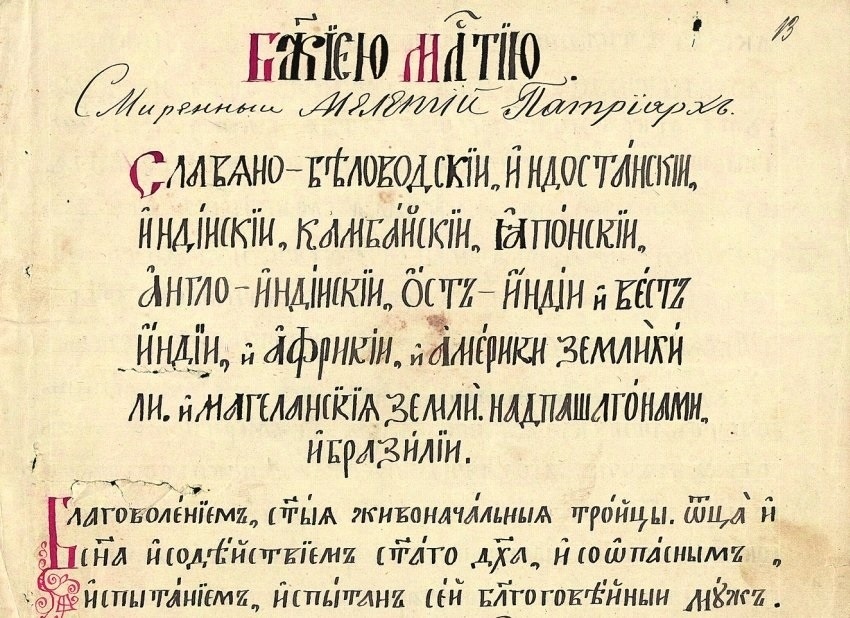 13
Бж҃їею Мл҃тїю.
Смиренныи Мелетїй Патрїархъ.
Славяно-Бѣловодскїи, и҆ндоста́нскїи,
и҆ндїйскїи, камба́йскїи, ꙗ҆по́нскїи,
а҆нгло-и҆ндїйскїи, О҆стъ-и҆́ндїи и҆ Ве́стъ
и҆́ндїи, и҆ а҆́фрикїи, и҆ а҆ме́рики земли̑ хи́
ли. и҆ магеланскїѧ земли̑. надпашаго́нами,
и҆ брази́лїи.
Благоволе́нїемъ, ст҃ыѧ живонача́льныѧ тро́йцы. ѻ҆ц҃а̀ и҆
сн҃а и҆ содѣ́йствїемъ ст҃а́го дх҃а, и҆ со ѻ҆па́снымъ,
и҆спыта́нїемъ, и҆спы́танъ се́й бл҃гоговѣ́йныи мꙋ́жъ.